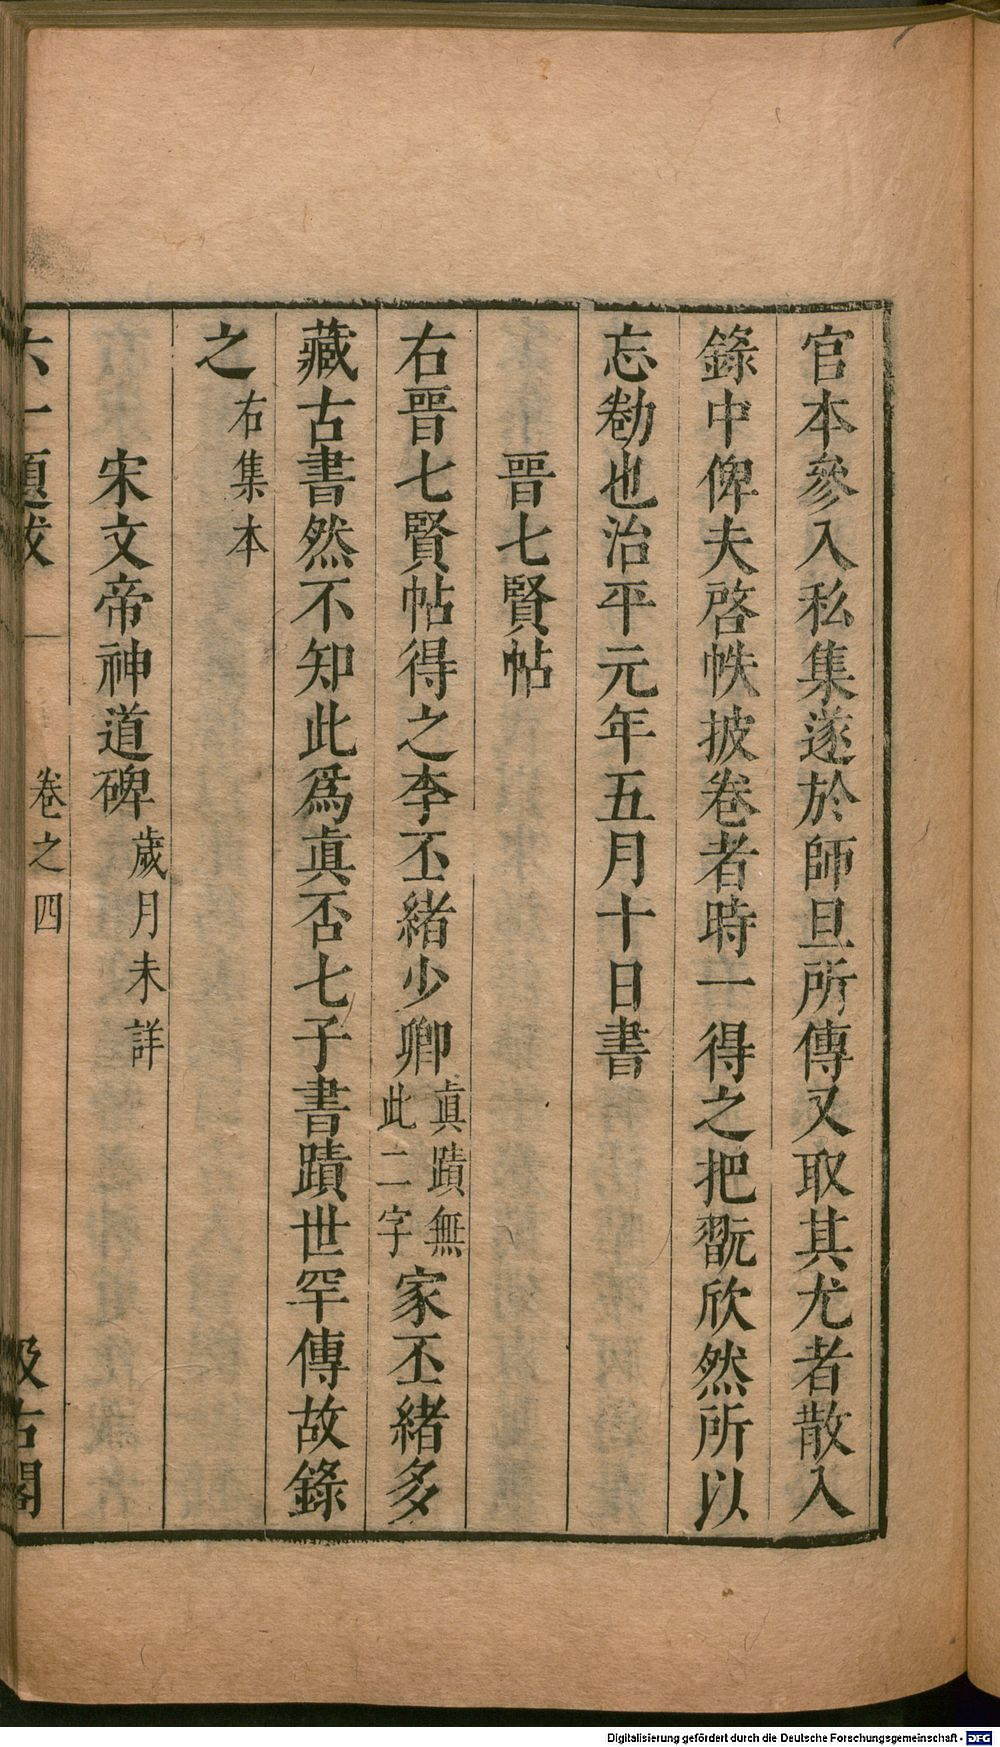 官本參入私集遂於師旦所傳又取其尤者散入
錄中俾夫啓帙披卷者時一得之把翫欣然所以
忘勌也治平元年五月十日書
晉七賢帖
右晉七賢帖得之李丕緒少卿真蹟無此二字家丕緒多
藏古書然不知此爲真否七子書蹟世罕傳故錄
之右集本
宋文帝神道碑歲月未詳
六一題跋 卷之四 汲古閣
Digitalisierung gefördert durch die Deutsche Forschungsgemeinschaft - DFG